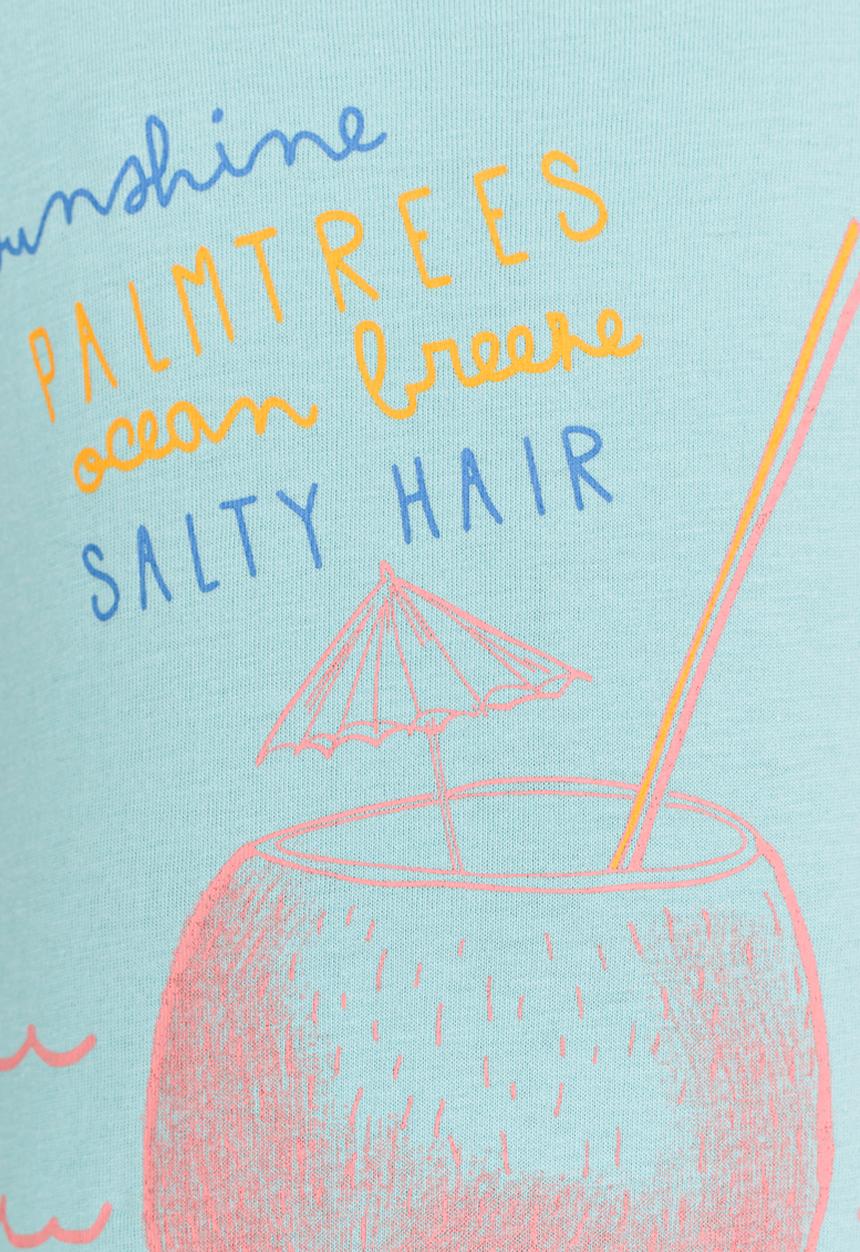 sunshine
PALMTREES
ocean breeze
SALTY HAIR